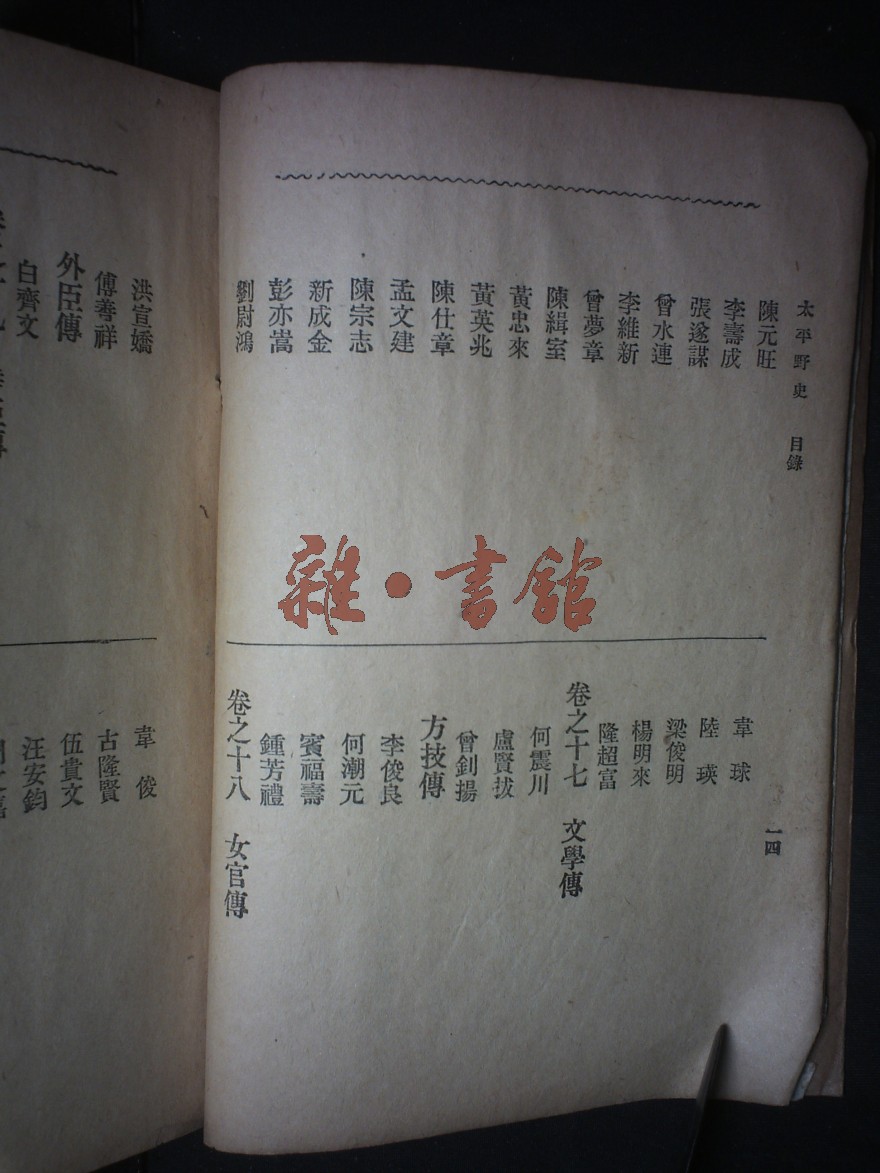 太平野史 目錄
一四
陳元旺
李壽成
張遂謀
曾水連
李維新
曾夢章
陳緝室
黃忠來
黃英兆
陳仕章
孟文建
陳宗志
新成金
彭亦嵩
劉尉鴻
韋球
陸瑛
梁俊明
楊明來
隆超富
卷之十七 文學傳
何震川
盧賢拔
曾釗揚
方技傳
李俊良
何潮元
賓福壽
鍾芳禮
卷之十八 女官傳
雜·書館
洪宣嬌
傅善祥
外臣傳
白齊文
韋俊
古隆賢
伍貴文
汪安鈞